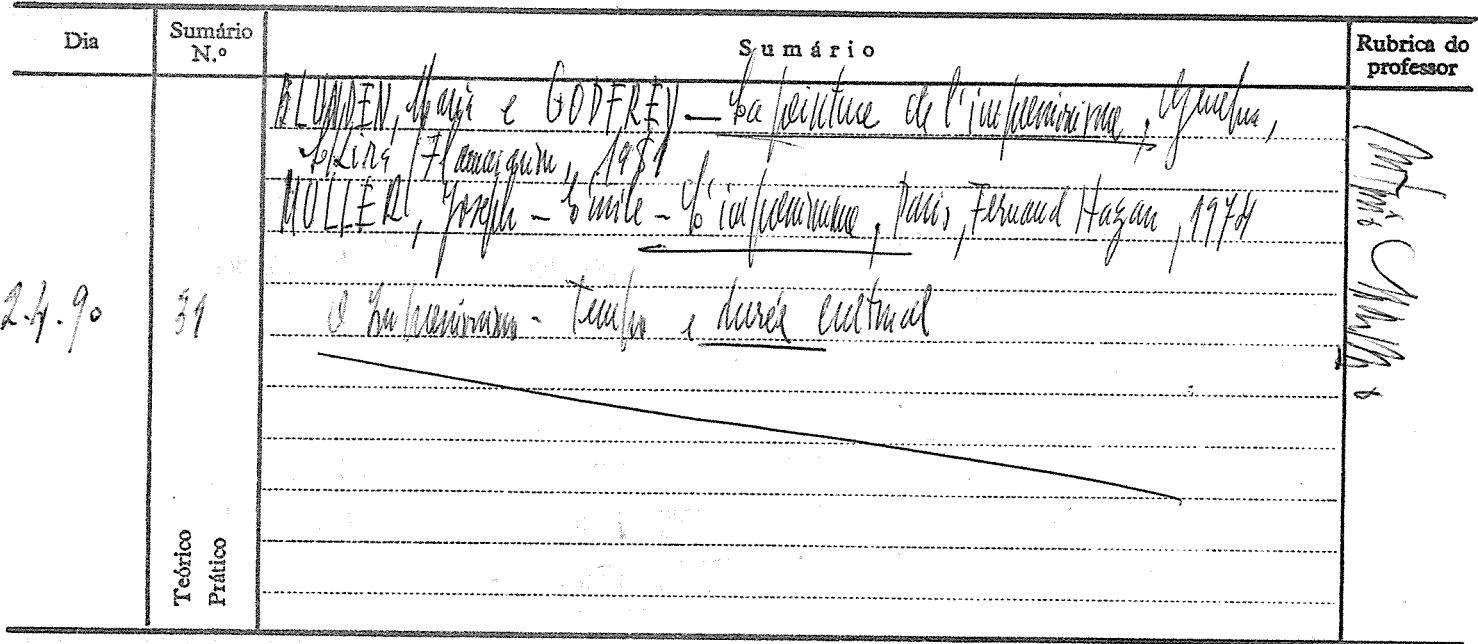 Dia
Sumário N.º
Sumário
Rubrica do professor
BLUNDEN, Maria e GODFREY — La peinture de l'impressionisme, Genebra,
Skira / Flammarion, 1981
MULLER, Joseph-Émile – L'impressionisme, Paris, Fernand Hazan, 1974
2.4.90
31
O Impressionismo - Tempo e durée cultural
Teórico
Prático